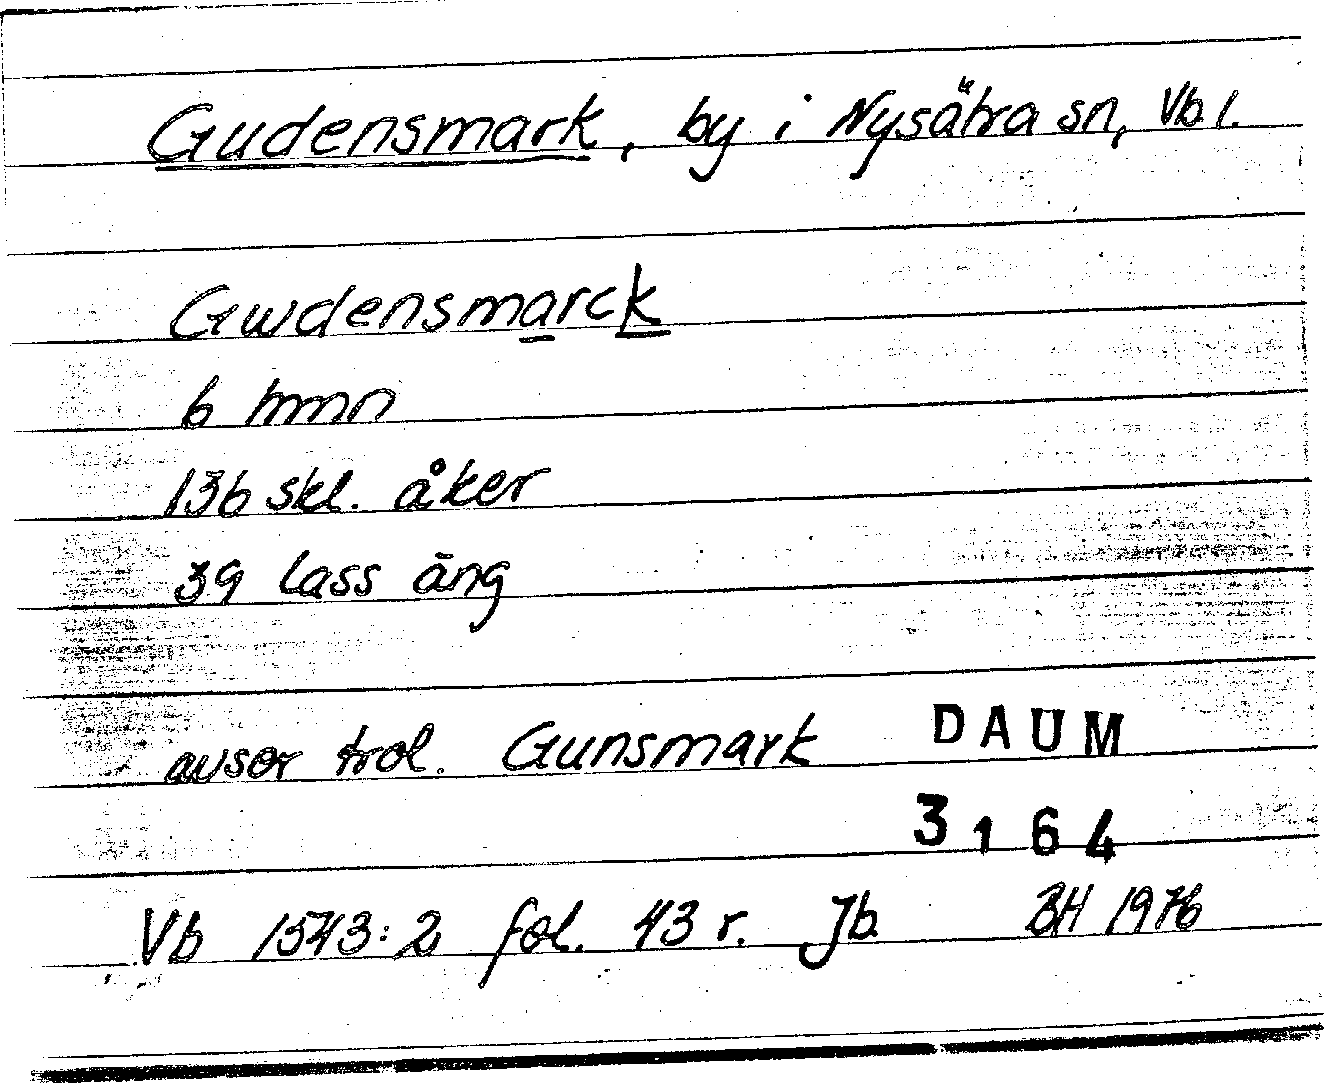 Gudensmark, by i Nysätra sn, Vb l.
Gwdensmarck
6 hmn
136 skl. åker
39 lass äng
avser trol. Gunsmark
DAUM
3164
Vb 1543:2 fol. 43 r. Jb. BH 1976